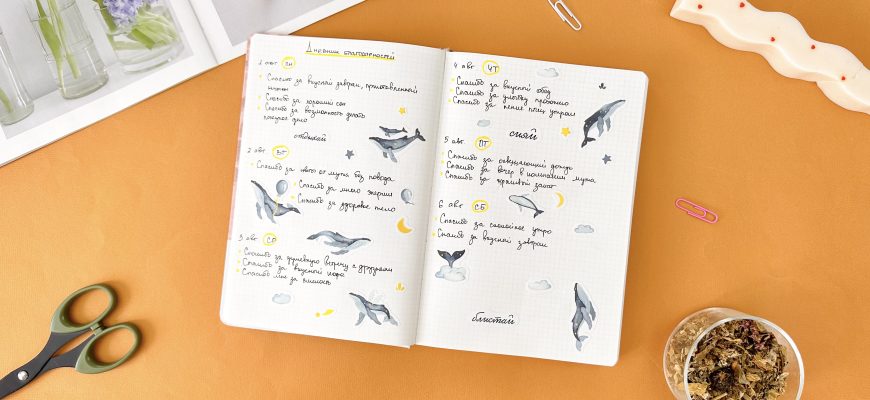 Дневник благодарностей
1 авг ПН
Спасибо за вкусный завтрак, приготовленный
Спасибо за хороший сон
Спасибо за возможность делать
отдыхай
2 авг ВТ
Спасибо за от мужа без повода
Спасибо за много энергии
Спасибо за здоровое тело
3 авг СР
Спасибо за душевную встречу с друзьями
Спасибо за вкусный кофе
Спасибо за
4 авг ЧТ
Спасибо за вкусный обед
Спасибо за улыбку прохожего
Спасибо за пение птиц утром
сияй
5 авг ПТ
Спасибо за освежающий дождь
Спасибо за вечер в компании мужа
Спасибо за красивый закат
6 авг СБ
Спасибо за спокойное утро
Спасибо за вкусный завтрак
блистай